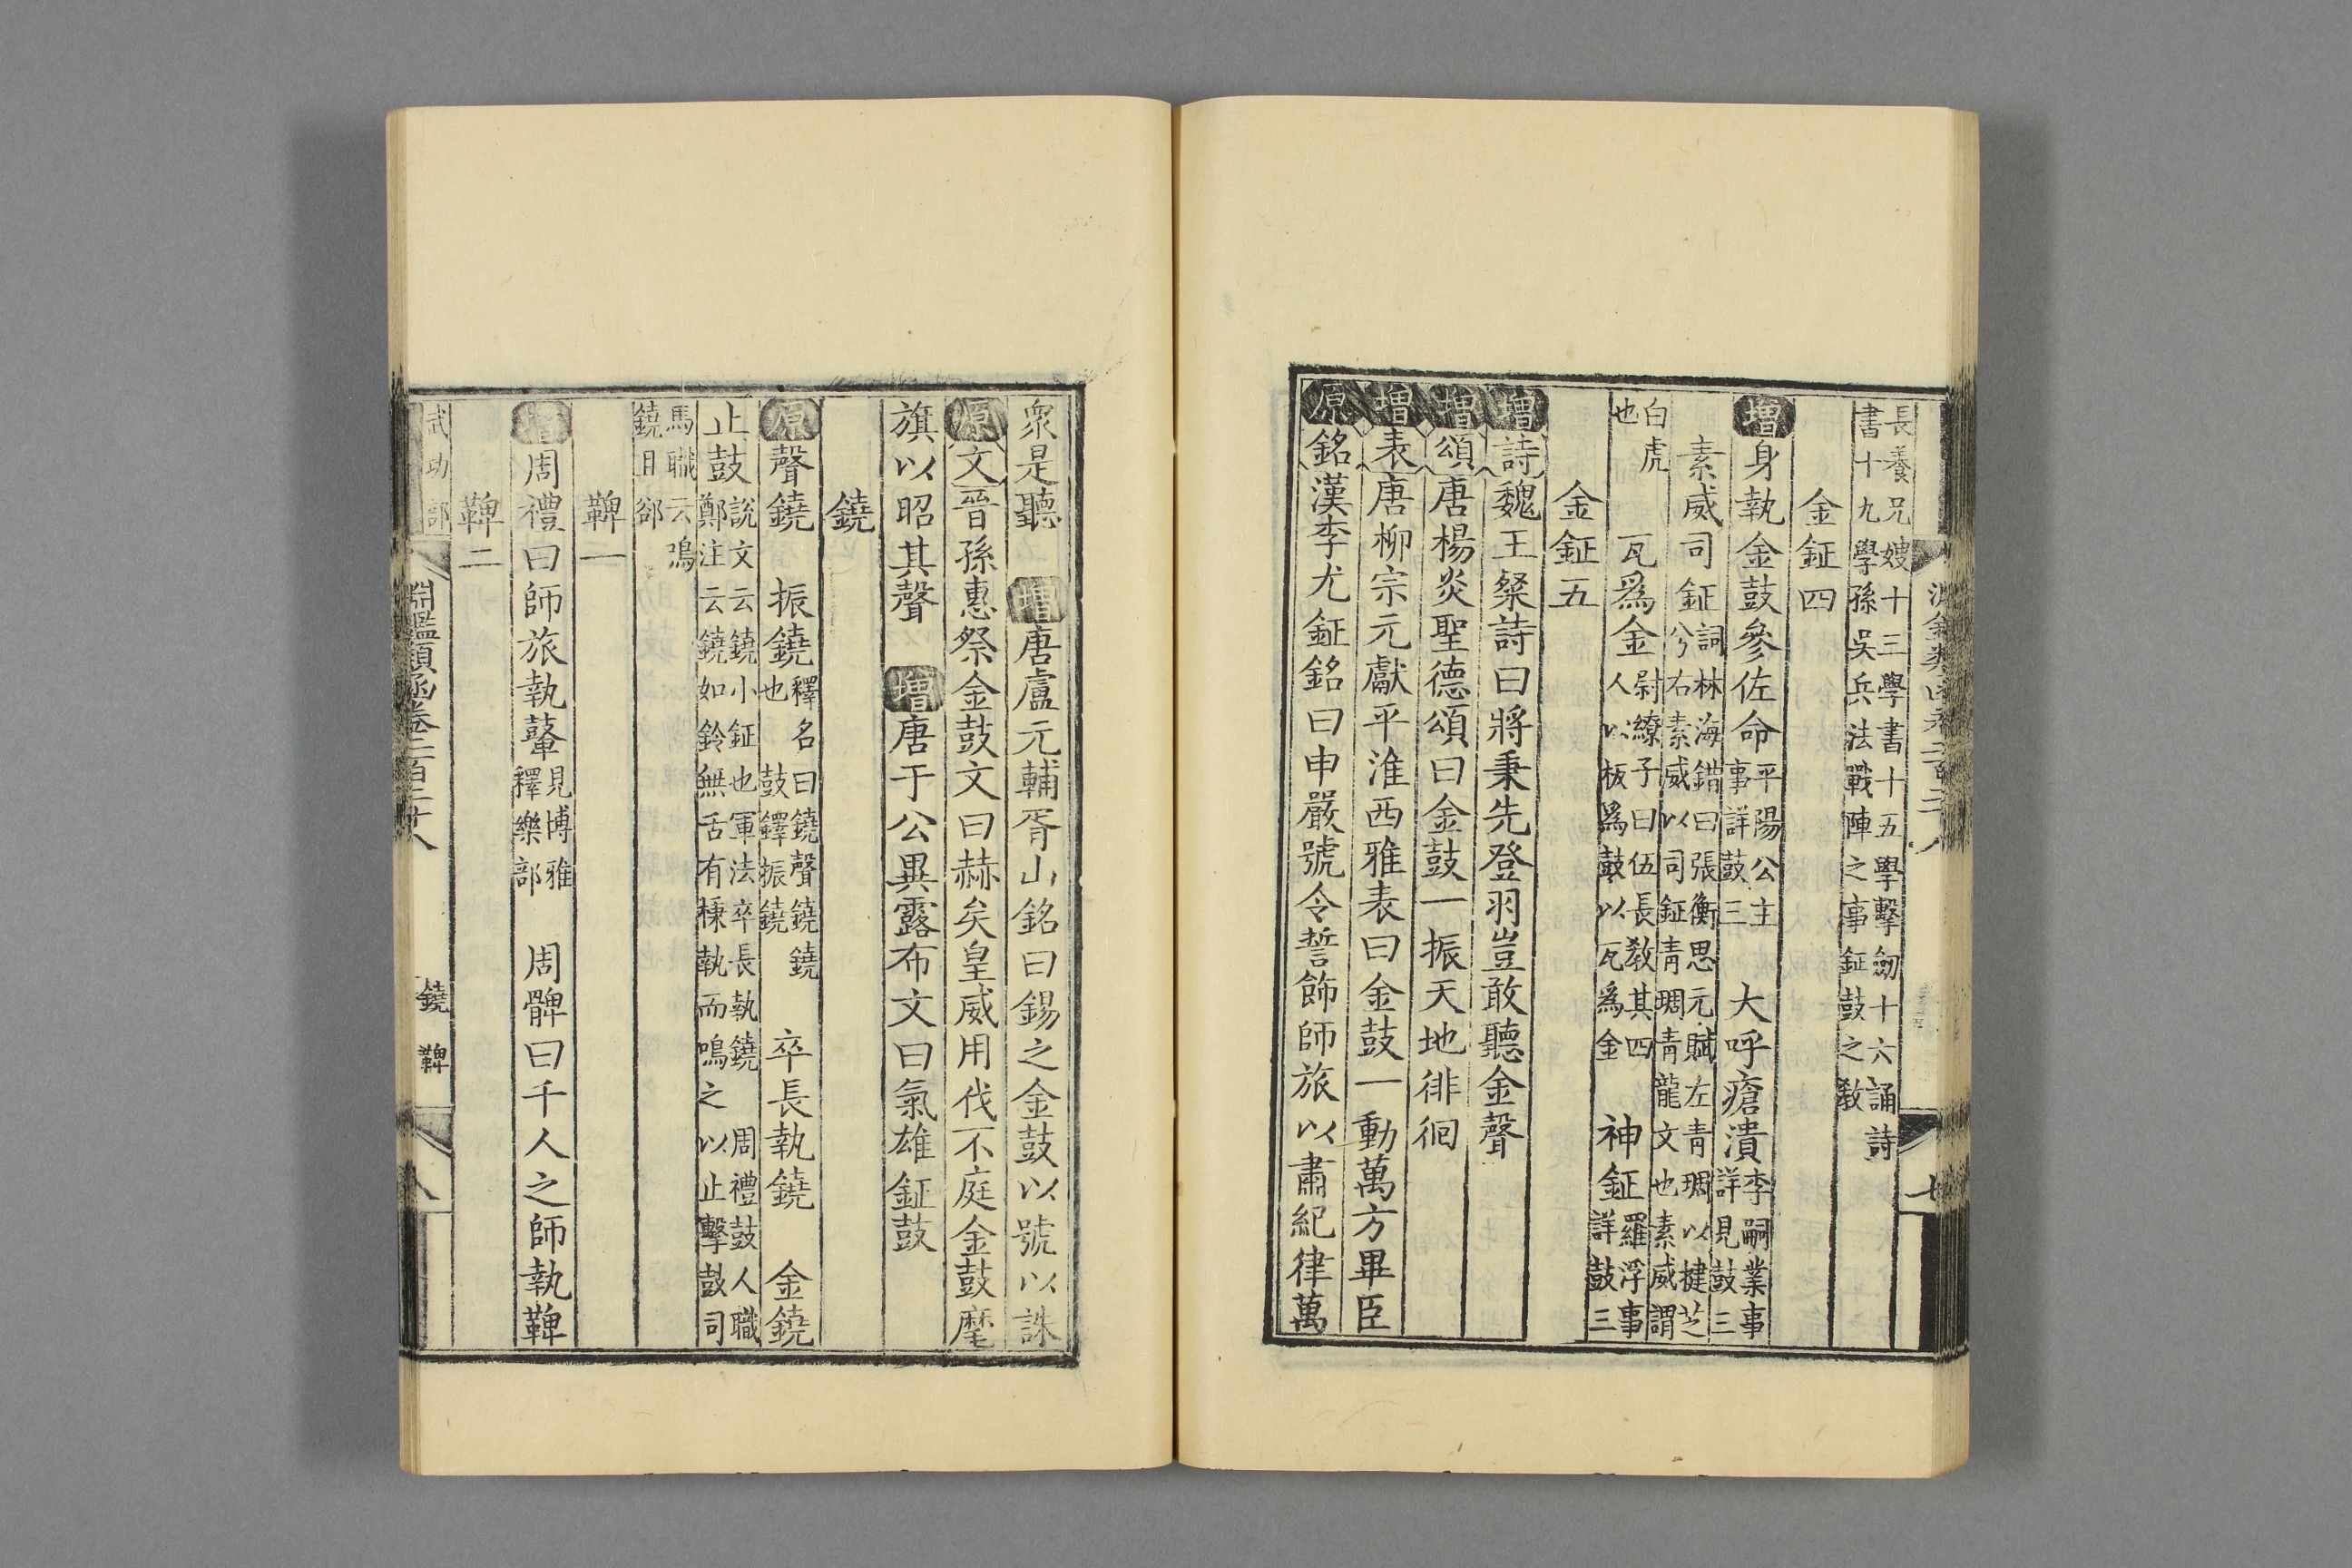 長養兄嫂十三學書十五學擊劒十六誦詩
書十九學孫吳兵法戰陣之事鉦鼓之教
金鉦四
增身執金鼓參佐命平陽公主事詳鼓三 大呼瘡潰李嗣業事詳見鼓三
素威司鉦詞林海錯曰張衡思元賦左青琱以揵芝兮右素威以司鉦青琱青龍文也素威謂
白虎也 瓦爲金尉繚子曰伍長教其四人以板爲鼓以瓦爲金 神鉦羅浮事詳鼓三
金鉦五
增詩魏王粲詩曰將秉先登羽豈敢聽金聲
增頌唐楊炎聖德頌曰金鼓一振天地徘徊
增表唐柳宗元獻平淮西雅表曰金鼓一動萬方畢臣
原銘漢李尤鉦銘曰申嚴號令誓飾師旅以肅紀律萬
七
衆是聽 增唐盧元輔胥山銘曰錫之金鼓以號以誅
原文晉孫惠祭金鼓文曰赫矣皇威用伐不庭金鼓麾
旗以昭其聲 增唐于公異露布文曰氣雄鉦鼓
鐃
原聲鐃 振鐃釋名曰鐃聲鐃鐃也 鼓鐸振鐃 卒長執鐃 金鐃
止鼓說文云鐃小鉦也軍法卒長執鐃鄭注云鐃如鈴無舌有秉執而鳴之 周禮鼓人職以止擊鼓司
馬職云鳴鐃且卻
鞞一
增周禮曰師旅執鼙見博雅釋樂部 周髀曰千人之師執鞞
鞞二
武功部
淵鑑類函卷二百二十八
鐃 鞞
八